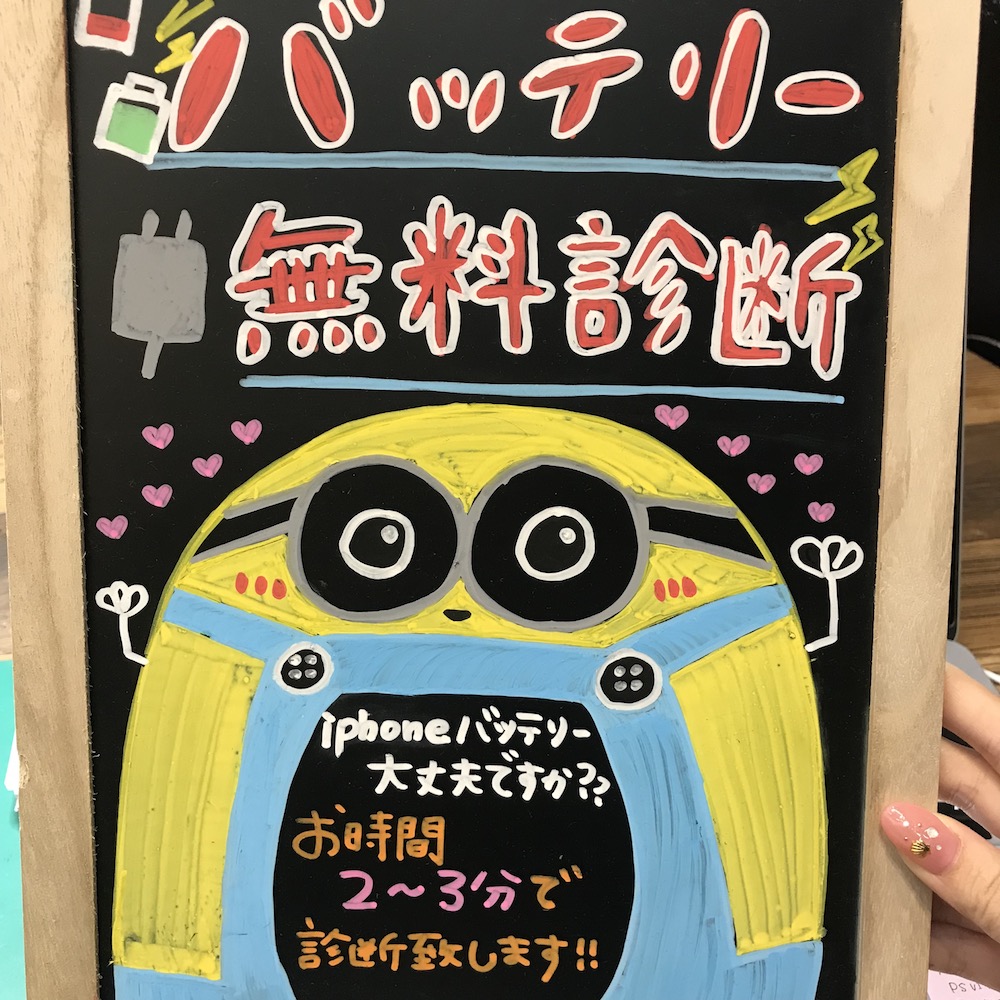 バッテリー
無料診断
iphoneバッテリー
大丈夫ですか??
お時間
2～3分で
診断致します!!